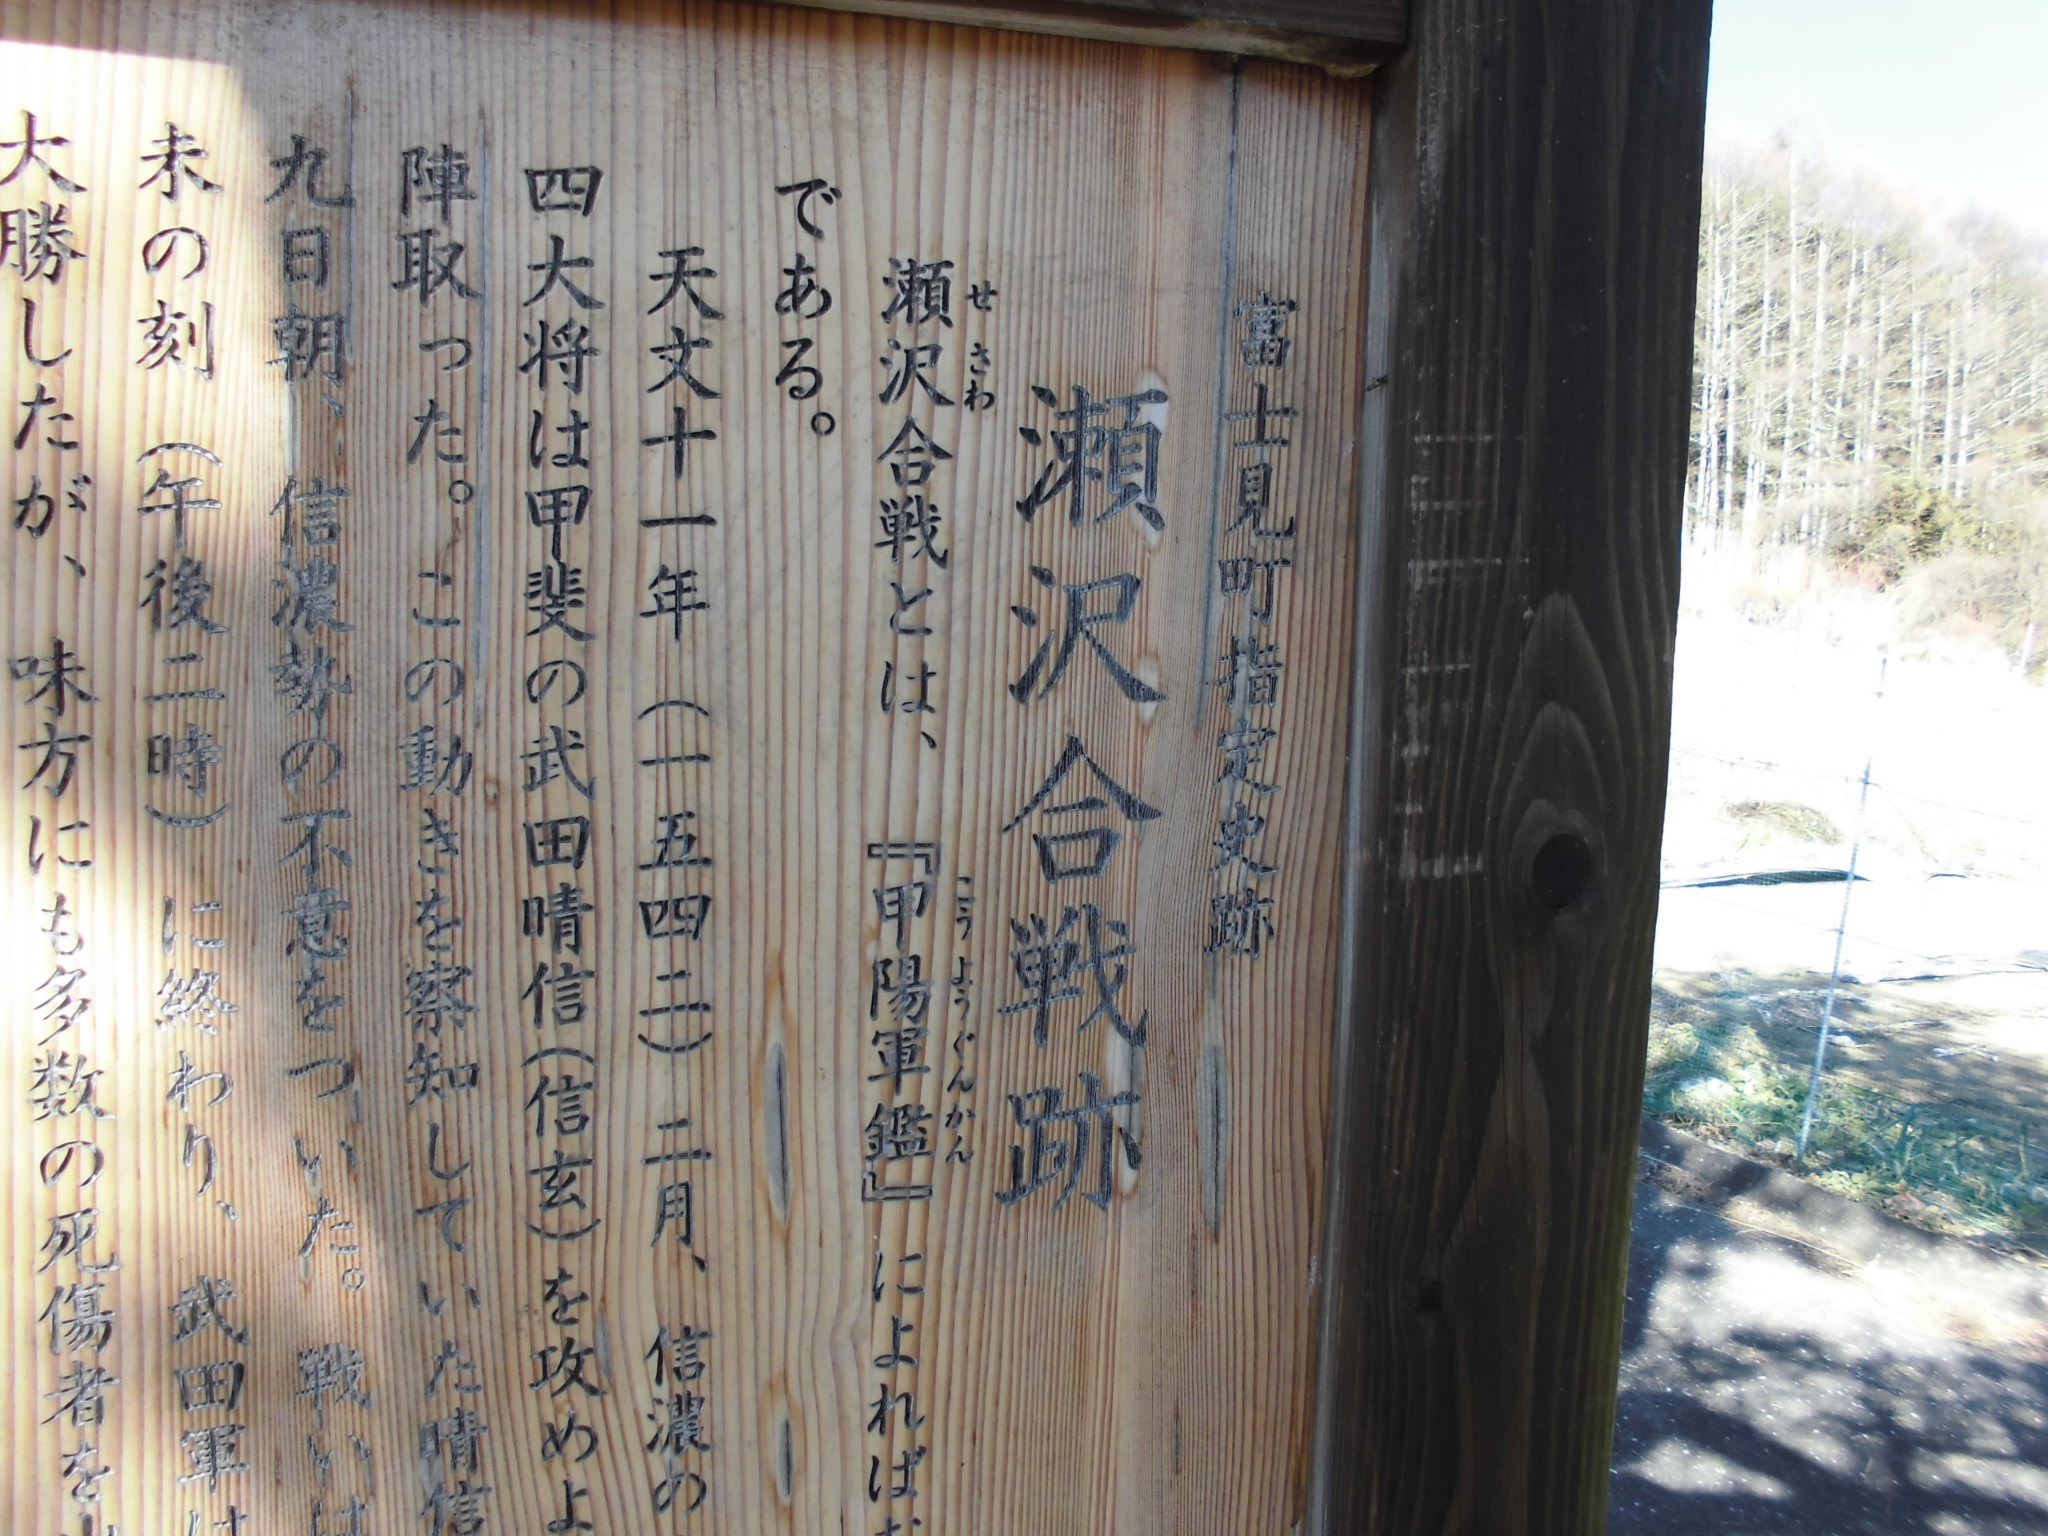 富士見町指定史跡
瀬沢合戦跡
せさわ
瀬沢合戦とは、『甲陽軍鑑』によれば
こうようぐんかん
である。
天文十一年(一五四二)二月、信濃の
四大将は甲斐の武田晴信(信玄)を攻めよ
陣取った。この動きを察知していた晴信
九日朝、信濃勢の不意をついた。戦いは
未の刻(午後二時)に終わり、武田軍は
大勝したが、味方にも多数の死傷者を